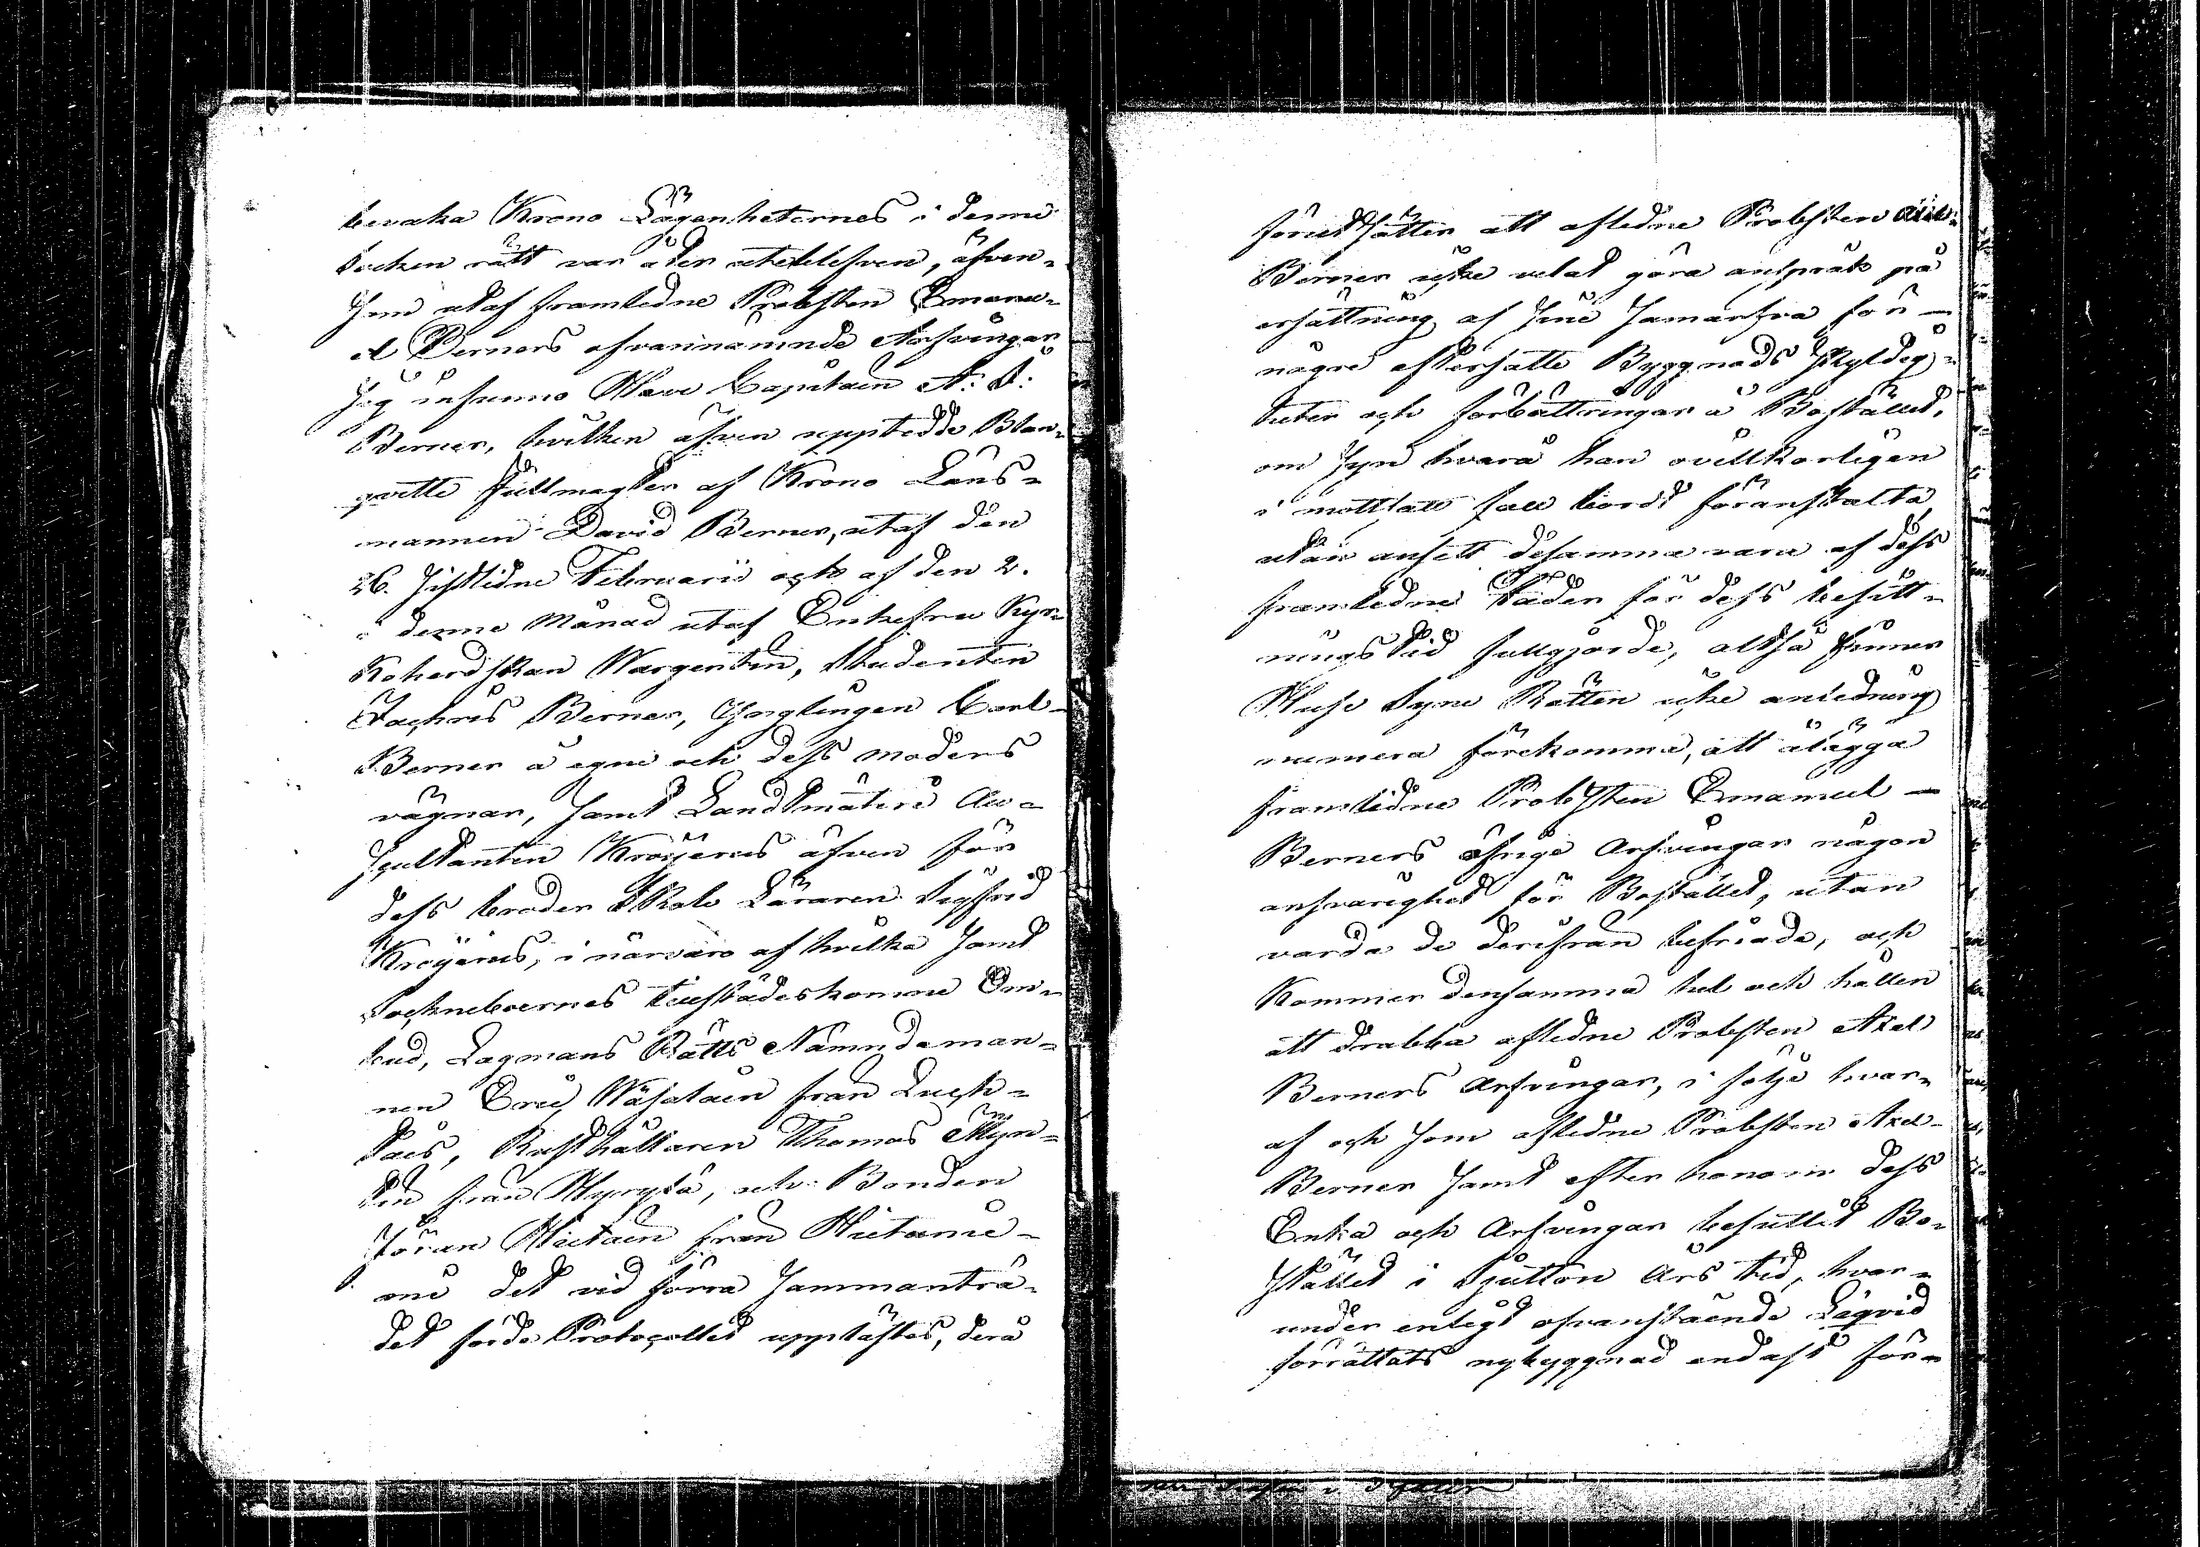 bevaka Krono Lägenheternes i denne
Socken rätt var äfven uteblefven, äfven-
som utaf framledne Probsten Emanu-
el Berners ofvannämnde Arfvingar
sig infunno Herr Capitain A: J:
Berner, hvilken äfven uppteddde Blan-
qvette fullmagter af Krono Läns-
mannen David Berner, utaf den
26. sistledne Februarii och af den 2.
i denne Månad utaf Enkefru Kyr-
koherdskan Wargentin, Studenten
Zachris Berner, Ynglingen Carl
Berner å egne och dess moders
vägnar, samt Landtmäteri Au-
scultanten Kröijerus äfven för
dess broder Skole Läraren Sigfrid
Kröijerus, i närvaro af hvilka samt
Sockneboernes tillstädeskomne Om-
bud, Lagmans Rätts Nämndeman-
nen Eric Wäjatain från Luch-
tais, Rusthållaren Thomas
från och Bonden
Jöran Hietain från Hietanie-
mi det vid förra sammanträ-
det förde Protocollet upplästes, derå
förutsätter att afledne Probsten Axel
Berner icke velat göra anspråk på
ersättning af sine Samarfva för
någre eftersatte Byggnads skyldig-
heter och förbättringar å Bostället,
om syn hvarå han ovillkorligen
i motsatt fall bordt föranstalta,
utan ansett desamma vara af dess
framledne Fader för dess besitt-
ningstid fullgjorde, altså finner
Huse Syne Rätten icke anledning
numera förekomma, att ålägga
framledne Probsten Emanuel
Berners öfrige Arfvingar någon
ansvarighet för Bostället, utan
varda de derifrån befriade, och
kommer densamma hel och hållen
att drabba afledne Probsten Axel
Berners Arfvingar, i följe hvar-
af och som afledne Probsten Axel
Berner samt efter honom dess
Enka och Arfvingar besuttit Bo-
stället i Sjutton Års tid, hvar-
under enligt ofvanstående Liqvid
förrättats nybyggnad endast för-